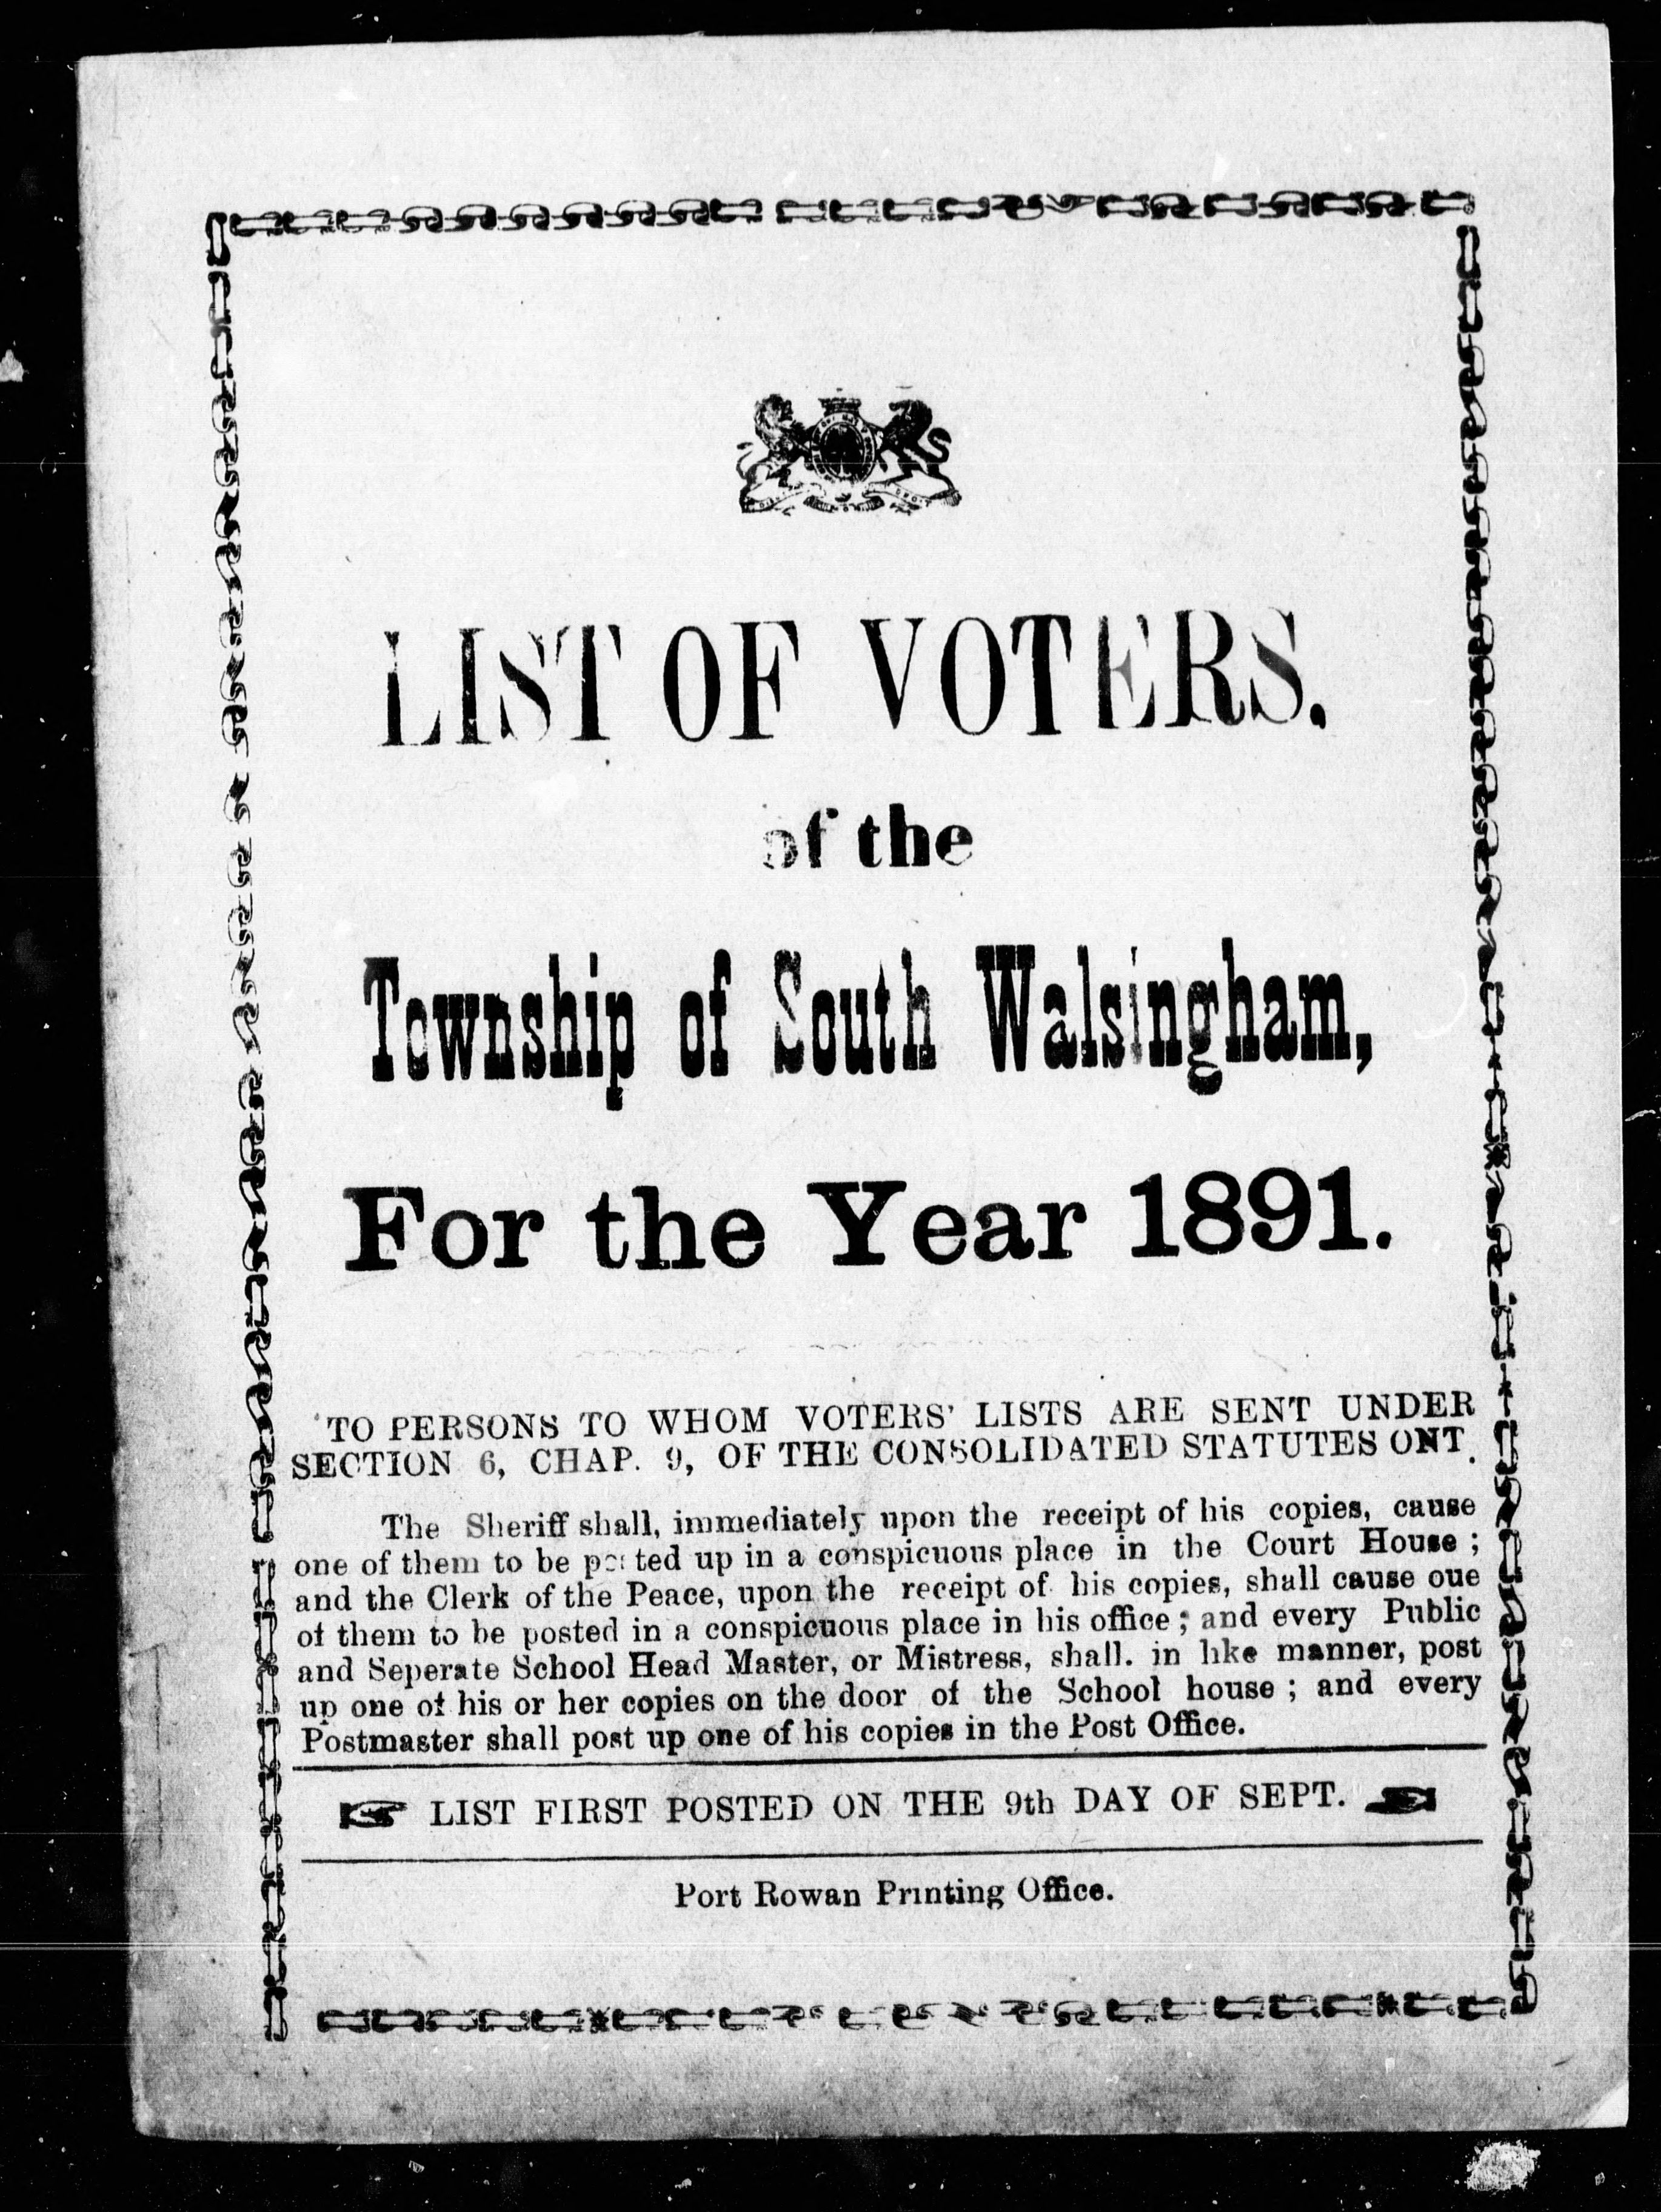 LIST OF VOTERS.
of the
Township of South Walsingham,
For the Year 1891.
TO PERSONS TO WHOM VOTERS' LISTS ARE SENT UNDER
SECTION 6, CHAP. 9, OF THE CONSOLIDATED STATUTES ONT.
The Sheriff shall, immediately upon the receipt of his copies, cause
one of them to be posted up in a conspicuous place in the Court House ;
and the Clerk of the Peace, upon the receipt of his copies, shall cause oue
of them to be posted in a conspicuous place in his office ; and every Public
and Seperate School Head Master, or Mistress, shall. in like manner, post
up one of his or her copies on the door of the School house ; and every
Postmaster shall post up one of his copies in the Post Office.
LIST FIRST POSTED ON THE 9th DAY OF SEPT.
Port Rowan Printing Office.